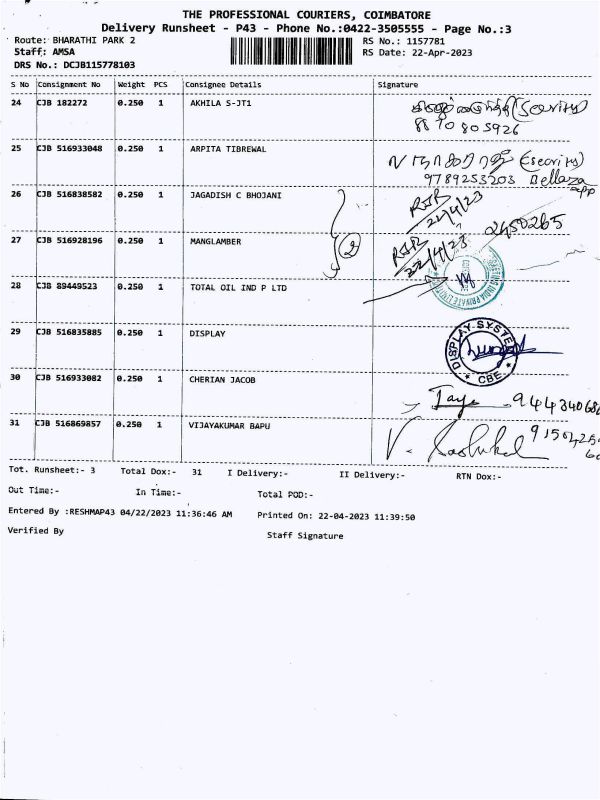 THE PROFESSIONAL COURIERS, COIMBATORE
Delivery Runsheet - P43 - Phone No.:0422-3505555 - Page No.:3
Route: BHARATHI PARK 2 RS No.: 1157781
Staff: AMSA RS Date: 22-Apr-2023
DRS No.: DCJB115778103
S No Consignment No Weight PCS Consignee Details Signature
24 CJB 182272 0.250 1 AKHILA S-JT1
8870805926
25 CJB 516933048 0.250 1 ARPITA TIBREWAL
9789253203 Bellaza app
26 CJB 516838582 0.250 1 JAGADISH C BHOJANI
22/4/23
2450265
27 CJB 516928196 0.250 1 MANGLAMBER 2
22/4/23
28 CJB 89449523 0.250 1 TOTAL OIL IND P LTD
29 CJB 516835885 0.250 1 DISPLAY
DISPLAY SYSTEM
CBE
30 CJB 516933082 0.250 1 CHERIAN JACOB
31 CJB 516869857 0.250 1 VIJAYAKUMAR BAPU
Tot. Runsheet:- 3 Total Dox:- 31 I Delivery:- II Delivery:- RTN Dox:-
Out Time:- In Time:- Total POD:-
Entered By :RESHMAP43 04/22/2023 11:36:46 AM Printed On: 22-04-2023 11:39:50
Verified By Staff Signature